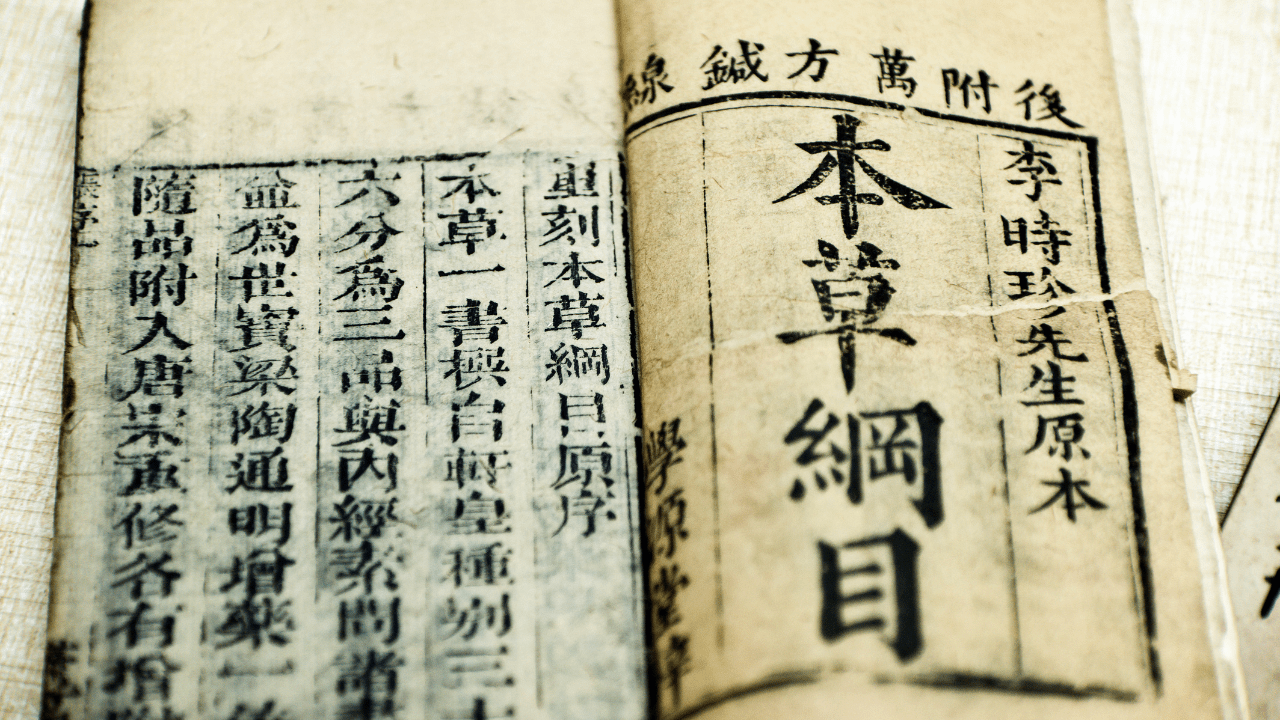 後附萬方鍼線
李時珍先生原本
本草綱目
學源堂
重刻本草綱目原序
本草一書撰自軒皇種別三十
六分為三品與内經素問諸
益為世寳梁陶通明增藥一
隨品附入唐宋重修各有增